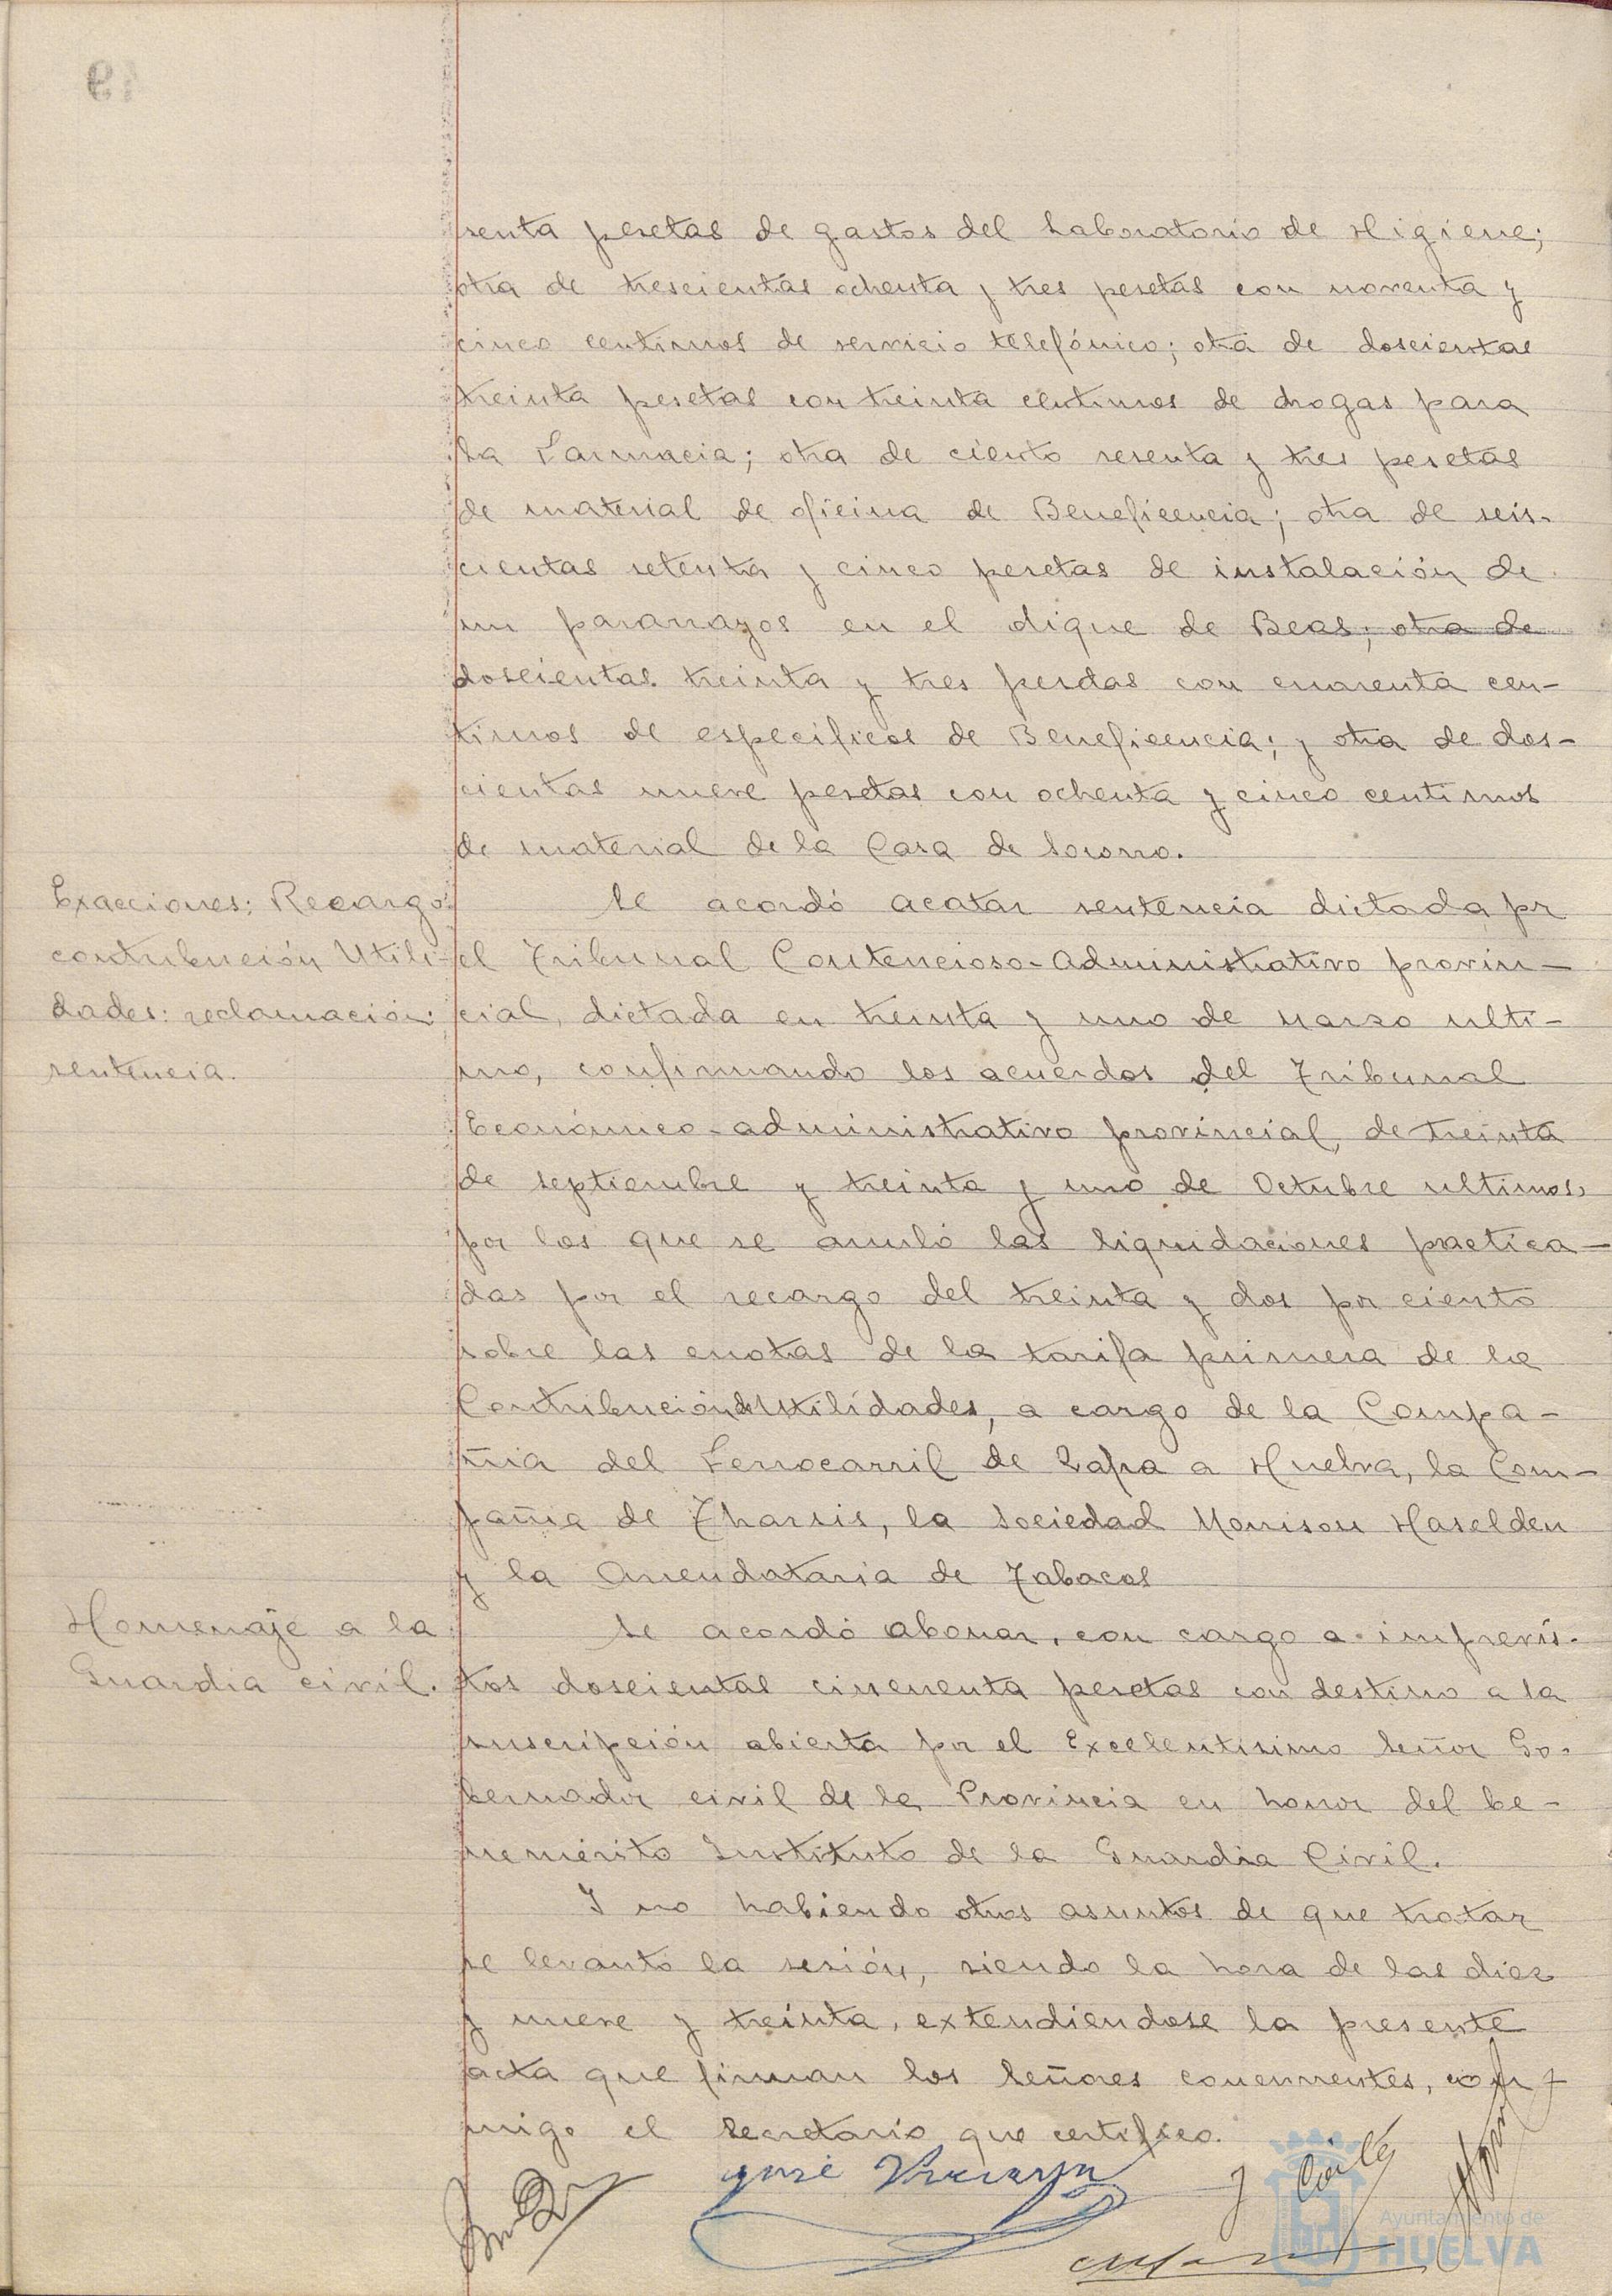 49
senta pesetas de gastos del Laboratorio de Higiene;
otra de trescientas ochenta y tres pesetas con noventa y
cinco centimos de servicio telefónico; otra de doscientas
treinta pesetas con treinta centimos de drogas para
la Farmacia; otra de ciento sesenta y tres pesetas
de material de oficina de Beneficencia; otra de seis-
cientas setenta y cinco pesetas de instalación de
un pararrayos en el dique de Beas; otra de
doscientas treinta y tres pesetas con cuarenta cen-
timos de especificos de Beneficencia; y otra de dos-
cientas nueve pesetas con ochenta y cinco centimos
de material de la Casa de Socorro.
Exacciones: Recargo
contribución Utili-
dades: reclamación:
sentencia.
Se acordó acatar sentencia dictada por
el Tribunal Contencioso-Administrativo provin-
cial, dictada en treinta y uno de Marzo ulti-
mo, confirmando los acuerdos del Tribunal
Económico-administrativo provincial, de treinta
de septiembre y treinta y uno de Octubre ultimos,
por los que se anuló las liquidaciones practica-
das por el recargo del treinta y dos por ciento
sobre las cuotas de la tarifa primera de la
Contribución de Utilidades, a cargo de la Compa-
ñia del Ferrocarril de Zafra a Huelva, la Com-
pañia de Tharsis, la Sociedad Morrison Haselden
y la Arrendataria de Tabacos
Homenaje a la
Guardia civil.
Se acordó abonar, con cargo a imprevis-
tos doscientas cincuenta pesetas con destino a la
suscripción abierta por el Excelentisimo Señor Go-
bernador civil de la Provincia en honor del be-
nemérito Instituto de la Guardia Civil.
Y no habiendo otros asuntos de que tratar
se levantó la sesión, siendo la hora de las diez
y nueve y treinta, extendiendose la presente
acta que firman los Señores concurrentes, con-
migo el Secretario que certifico.
José
Ayuntamiento de
HUELVA